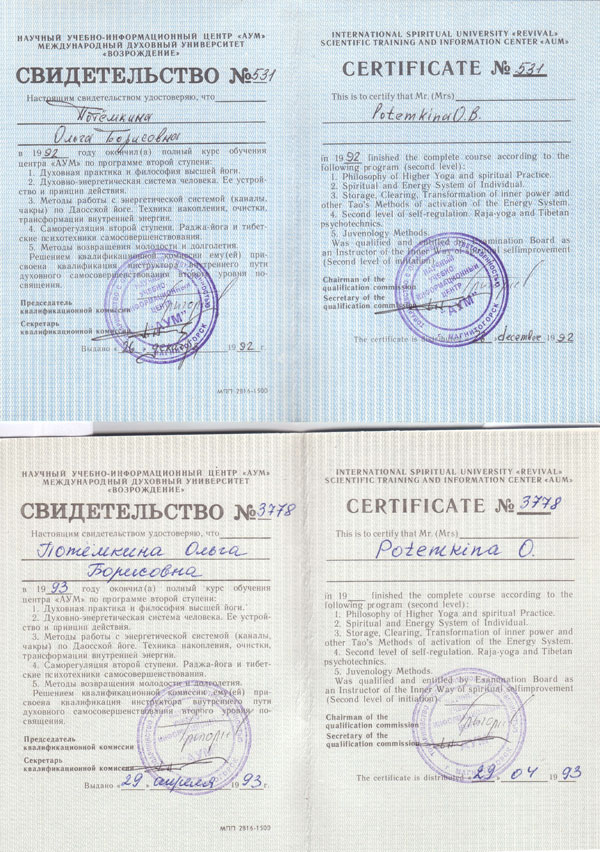 НАУЧНЫЙ УЧЕБНО-ИНФОРМАЦИОННЫЙ ЦЕНТР «АУМ»
МЕЖДУНАРОДНЫЙ ДУХОВНЫЙ УНИВЕРСИТЕТ
«ВОЗРОЖДЕНИЕ»
СВИДЕТЕЛЬСТВО № 531
Настоящим свидетельством удостоверяю, что
Потёмкина
Ольга Борисовна
в 1992 году окончил(а) полный курс обучения
центра «АУМ» по программе второй ступени:
1. Духовная практика и философия высшей йоги.
2. Духовно-энергетическая система человека. Ее устрой-
ство и принцип действия.
3. Методы работы с энергетической системой (каналы,
чакры) по Даосской йоге. Техника накопления, очистки,
трансформации внутренней энергии.
4. Саморегуляция второй ступени. Раджа-йога и тибет-
ские психотехники самосовершенствования.
5. Методы возвращения молодости и долголетия.
Решением квалификационной комиссии ему(ей) при-
своена квалификация инструктора внутреннего пути
духовного самосовершенствования второго уровня по-
священия.
Председатель
квалификационной комиссии
Секретарь
квалификационной комиссии
"АУМ"
МАГНИТОГОРСК
Выдано «26» декабря 1992 г.
МПП 2816-1500
INTERNATIONAL SPIRITUAL UNIVERSITY «REVIVAL»
SCIENTIFIC TRAINING AND INFORMATION CENTER «AUM»
CERTIFICATE № 531
This is to certify that Mr. (Mrs)
Potemkina O.B.
in 1992 finished the complete course according to the
following program (second level):
1. Philosophy of Higher Yoga and spiritual Practice.
2. Spiritual and Energy System of Individual.
3. Storage, Clearing, Transformation of inner power and
other Tao's Methods of activation of the Energy System.
4. Second level of self-regulation. Raja-yoga and Tibetan
psychotechnics.
5. Juvenology Methods.
Was qualified and entitled by Examination Board as
an Instructor of the Inner Way of spiritual selfimprovement
(Second level of initiation).
Chairman of the
qualification commission
Secretary of the
qualification commission
УЧЕБНО
ИНФОРМАЦИОННЫЙ
ЦЕНТР
"АУМ"
МАГНИТОГОРСК
The certificate is distributed decembre 1992
НАУЧНЫЙ УЧЕБНО-ИНФОРМАЦИОННЫЙ ЦЕНТР «АУМ»
МЕЖДУНАРОДНЫЙ ДУХОВНЫЙ УНИВЕРСИТЕТ
«ВОЗРОЖДЕНИЕ»
СВИДЕТЕЛЬСТВО № 3778
Настоящим свидетельством удостоверяю, что
Потёмкина Ольга
Борисовна
в 1993 году окончил(а) полный курс обучения
центра «АУМ» по программе второй ступени:
1. Духовная практика и философия высшей йоги.
2. Духовно-энергетическая система человека. Ее устрой-
ство и принцип действия.
3. Методы работы с энергетической системой (каналы,
чакры) по Даосской йоге. Техника накопления, очистки,
трансформации внутренней энергии.
4. Саморегуляция второй ступени. Раджа-йога и тибет-
ские психотехники самосовершенствования.
5. Методы возвращения молодости и долголетия.
Решением квалификационной комиссии ему(ей) при-
своена квалификация инструктора внутреннего пути
духовного самосовершенствования второго уровня по-
священия.
Председатель
квалификационной комиссии
Секретарь
квалификационной комиссии
"АУМ"
Выдано «29» апреля 1993 г.
МПП 2816-1500
INTERNATIONAL SPIRITUAL UNIVERSITY «REVIVAL»
SCIENTIFIC TRAINING AND INFORMATION CENTER «AUM»
CERTIFICATE № 3778
This is to certify that Mr. (Mrs)
Potemkina O.
in 19 finished the complete course according to the
following program (second level):
1. Philosophy of Higher Yoga and spiritual Practice.
2. Spiritual and Energy System of Individual.
3. Storage, Clearing, Transformation of inner power and
other Tao's Methods of activation of the Energy System.
4. Second level of self-regulation. Raja-yoga and Tibetan
psychotechnics.
5. Juvenology Methods.
Was qualified and entitled by Examination Board as
an Instructor of the Inner Way of spiritual selfimprovement
(Second level of initiation).
Chairman of the
qualification commission
Secretary of the
qualification commission
"АУМ"
The certificate is distributed 29 04 1993